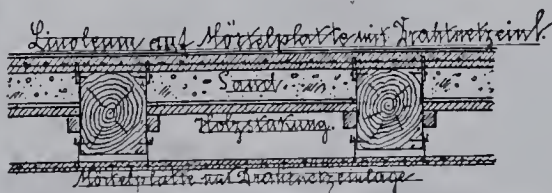 Linoleum auf Mörtelplatte mit Drahtnetzeinl.
Sand
Holzstakung.
Mörtelplatte mit Drahtnetzeinlage